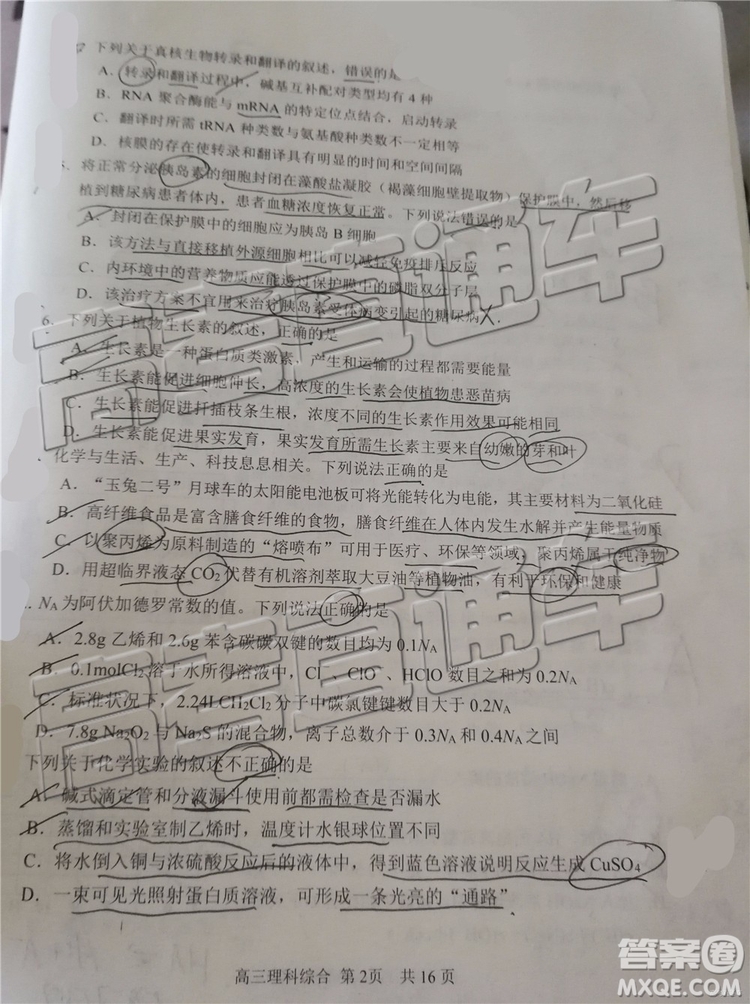 下列关于真核生物转录和翻译的叙述，错误的是
A．转录和翻译过程中，碱基互补配对类型均有 4 种
B．RNA 聚合酶能与 mRNA 的特定位点结合，启动转录
C．翻译时所需 tRNA 种类数与氨基酸种类数不一定相等
D．核膜的存在使转录和翻译具有明显的时间和空间间隔
将正常分泌胰岛素的细胞封闭在藻酸盐凝胶（褐藻细胞壁提取物）保护膜中，然后移
植到糖尿病患者体内，患者血糖浓度恢复正常。下列说法错误的是
A．封闭在保护膜中的细胞应为胰岛 B 细胞
B．该方法与直接移植外源细胞相比可以减轻免疫排斥反应
C．内环境中的营养物质应能透过保护膜中的磷脂双分子层
D．该治疗方案不宜用来治疗胰岛素受体病变引起的糖尿病
6．下列关于植物生长素的叙述，正确的是
A．生长素是一种蛋白质类激素，产生和运输的过程都需要能量
B．生长素能促进细胞伸长，高浓度的生长素会使植物患恶苗病
C．生长素能促进扦插枝条生根，浓度不同的生长素作用效果可能相同
D．生长素能促进果实发育，果实发育所需生长素主要来自幼嫩的芽和叶
．化学与生活、生产、科技息息相关。下列说法正确的是
A．“玉兔二号”月球车的太阳能电池板可将光能转化为电能，其主要材料为二氧化硅
B．高纤维食品是富含膳食纤维的食物，膳食纤维在人体内发生水解并产生能量物质
C．以聚丙烯为原料制造的“熔喷布”可用于医疗、环保等领域，聚丙烯属于纯净物
D．用超临界液态 CO2 代替有机溶剂萃取大豆油等植物油，有利于环保和健康
．NA 为阿伏加德罗常数的值。下列说法正确的是
A．2.8g 乙烯和 2.6g 苯含碳碳双键的数目均为 0.1NA
B．0.1molCl2 溶于水所得溶液中，Cl⁻、ClO⁻、HClO 数目之和为 0.2NA
C．标准状况下，2.24LCH2Cl2 分子中碳氯键键数目大于 0.2NA
D．7.8g Na2O2 与 Na2S 的混合物，离子总数介于 0.3NA 和 0.4NA 之间
下列关于化学实验的叙述不正确的是
A．碱式滴定管和分液漏斗使用前都需检查是否漏水
B．蒸馏和实验室制乙烯时，温度计水银球位置不同
C．将水倒入铜与浓硫酸反应后的液体中，得到蓝色溶液说明反应生成 CuSO4
D．一束可见光照射蛋白质溶液，可形成一条光亮的“通路”
高三理科综合 第 2页 共 16 页
高考直通车
高考直通车
答案圈
MXQE.COM